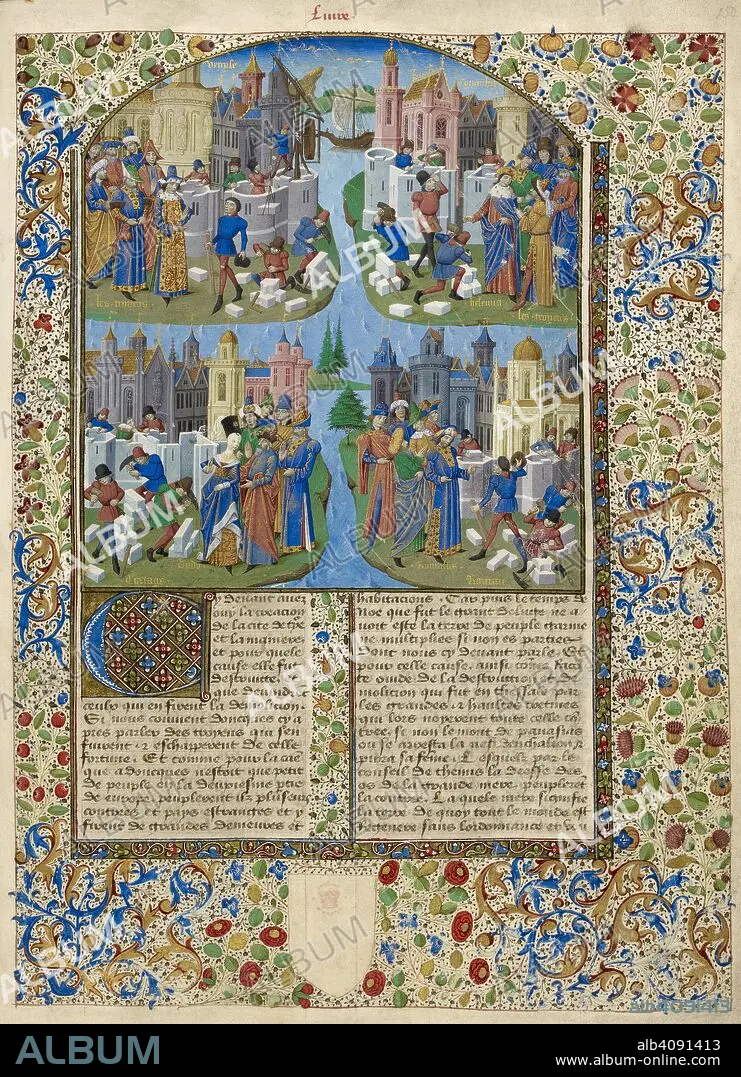 Liure
150
les troyens
helenus
les troyens
Cartage
Dydo
Romulus
Romme
y deuant auez
ouy la
de la cite de
et la maniere
et pour quele
cause elle fut
destruite
que
ceulx qui en firent la destruction.
Si nous couuient doncques cy a
pres parler des troyens qui sen
fuirent & escharperent de celle
fortune. Et comme pour la
que adoncques nestoit que petit
de peuple en la dessus ptie
de europe peuplerent ilz plusieurs
contrees et pays estranges et y
firent de grandes demeures et
habitacions. Car puis le temps
Noe que fut le grant deluge ne a
uoit este la terre de peuple garnie
ne multipliee si non es parties
dont nous cy deuant parle. Et
pour celle cause ainsi come
ouide de la destruction & de
molicion qui fut en thessale par
les grandes & haultes
qui lors noyerent toute celle
si non le mont de
ou se aresta la nef deucalion &
pirra sa feme. Lesquels par le
conseil de themis la deesse des
os de la grande mere peuplerent
la terre. La quele mere signifie
la terre de quoy tout le monde est
Regenere sans lordonnance
ALBUM
alb4091413
ALBUM
alb4091413
www.album-online.com